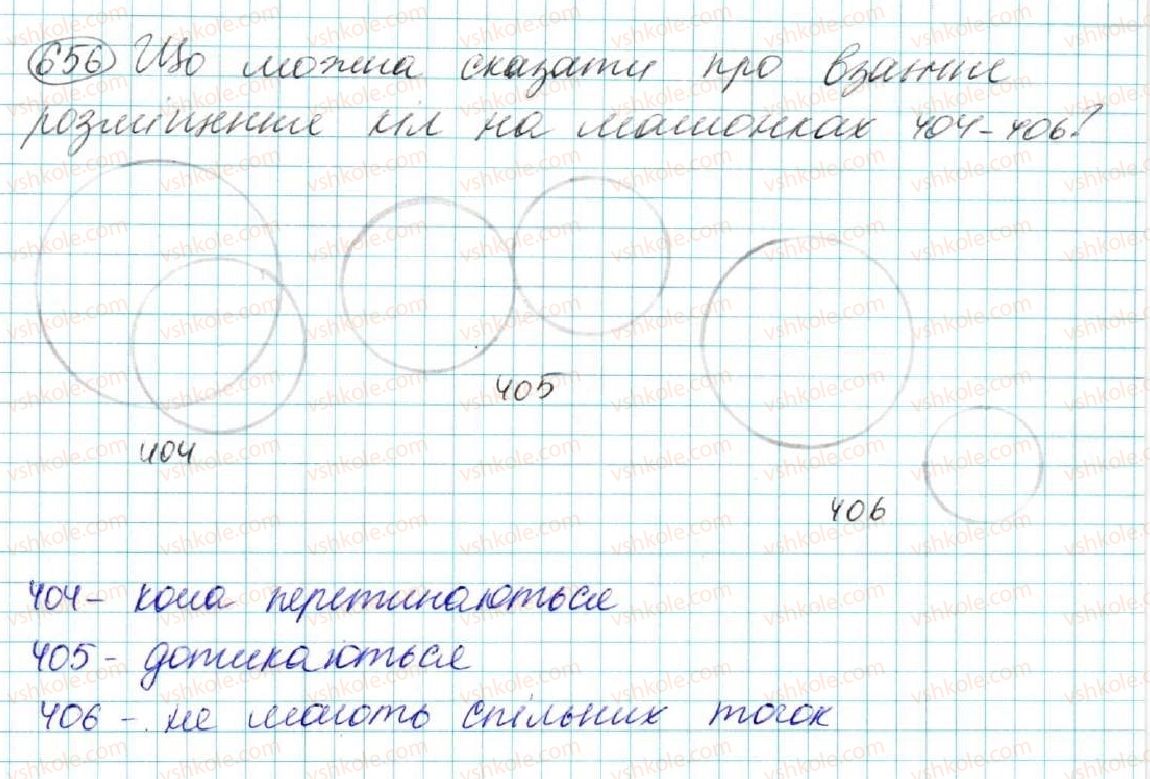 656 Що можна сказати про взаємне
розміщення кіл на малюнках 404-406?
405
404
406
404 - кола перетинаються
405 - дотикаються
406 - не мають спільних точок